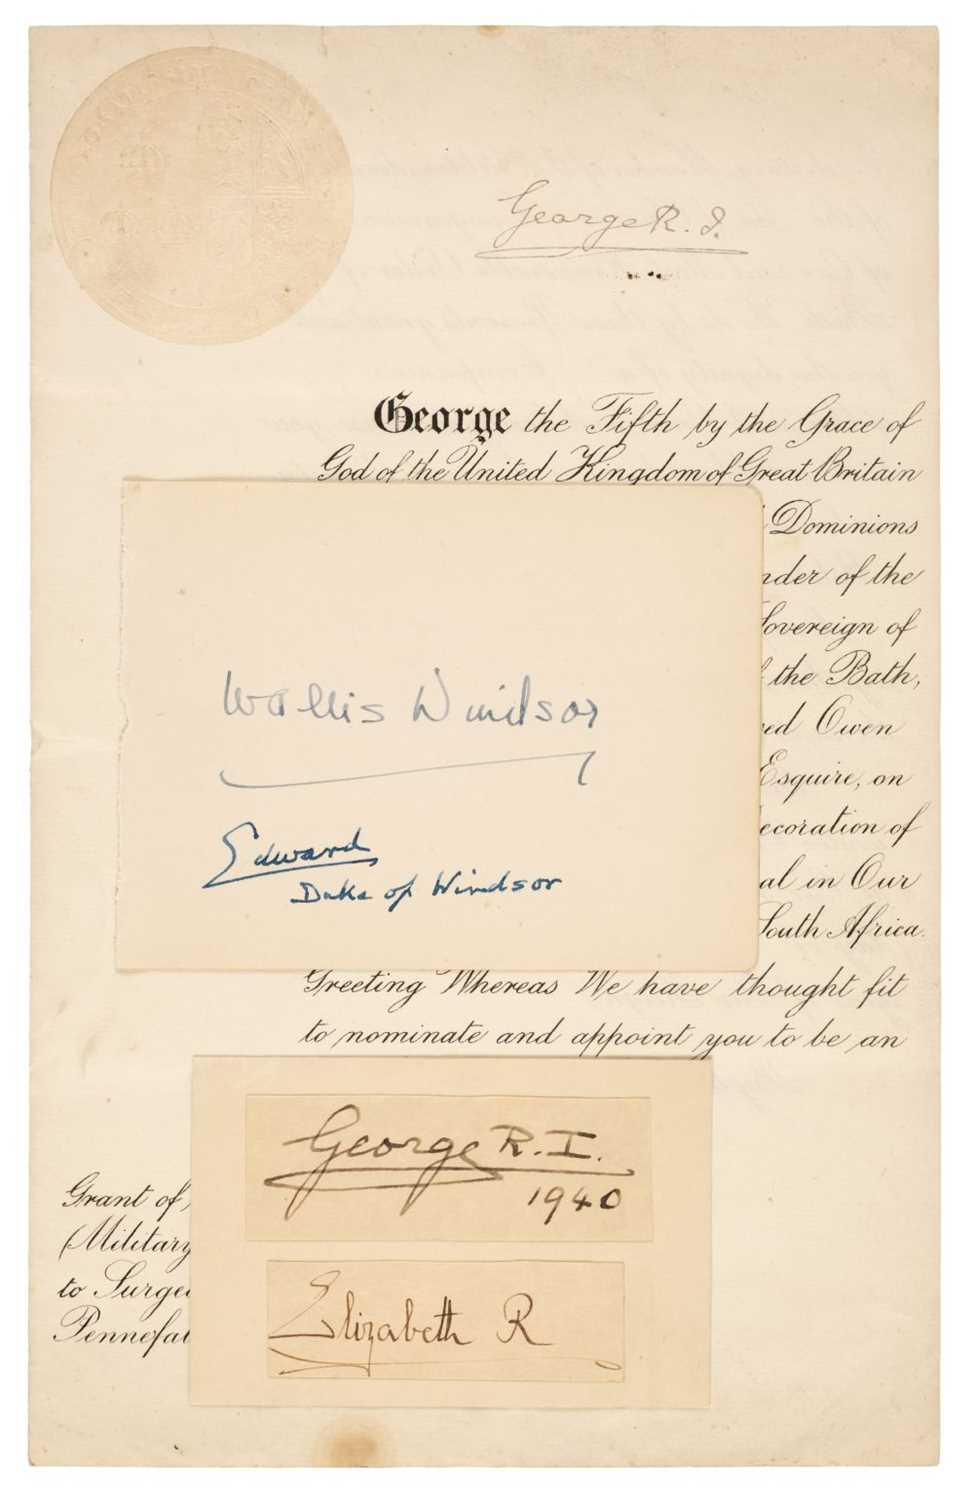 George R. I.
George the Fifth by the Grace of
God of the United Kingdom of Great Britain
Dominions
of the
Sovereign of
the Bath,
Owen
Esquire, on
of
in Our
South Africa.
Greeting Whereas We have thought fit
to nominate and appoint you to be an
Wallis Windsor
Edward
Duke of Windsor
George R. I.
1940
Elizabeth R
Grant of
(Military
to